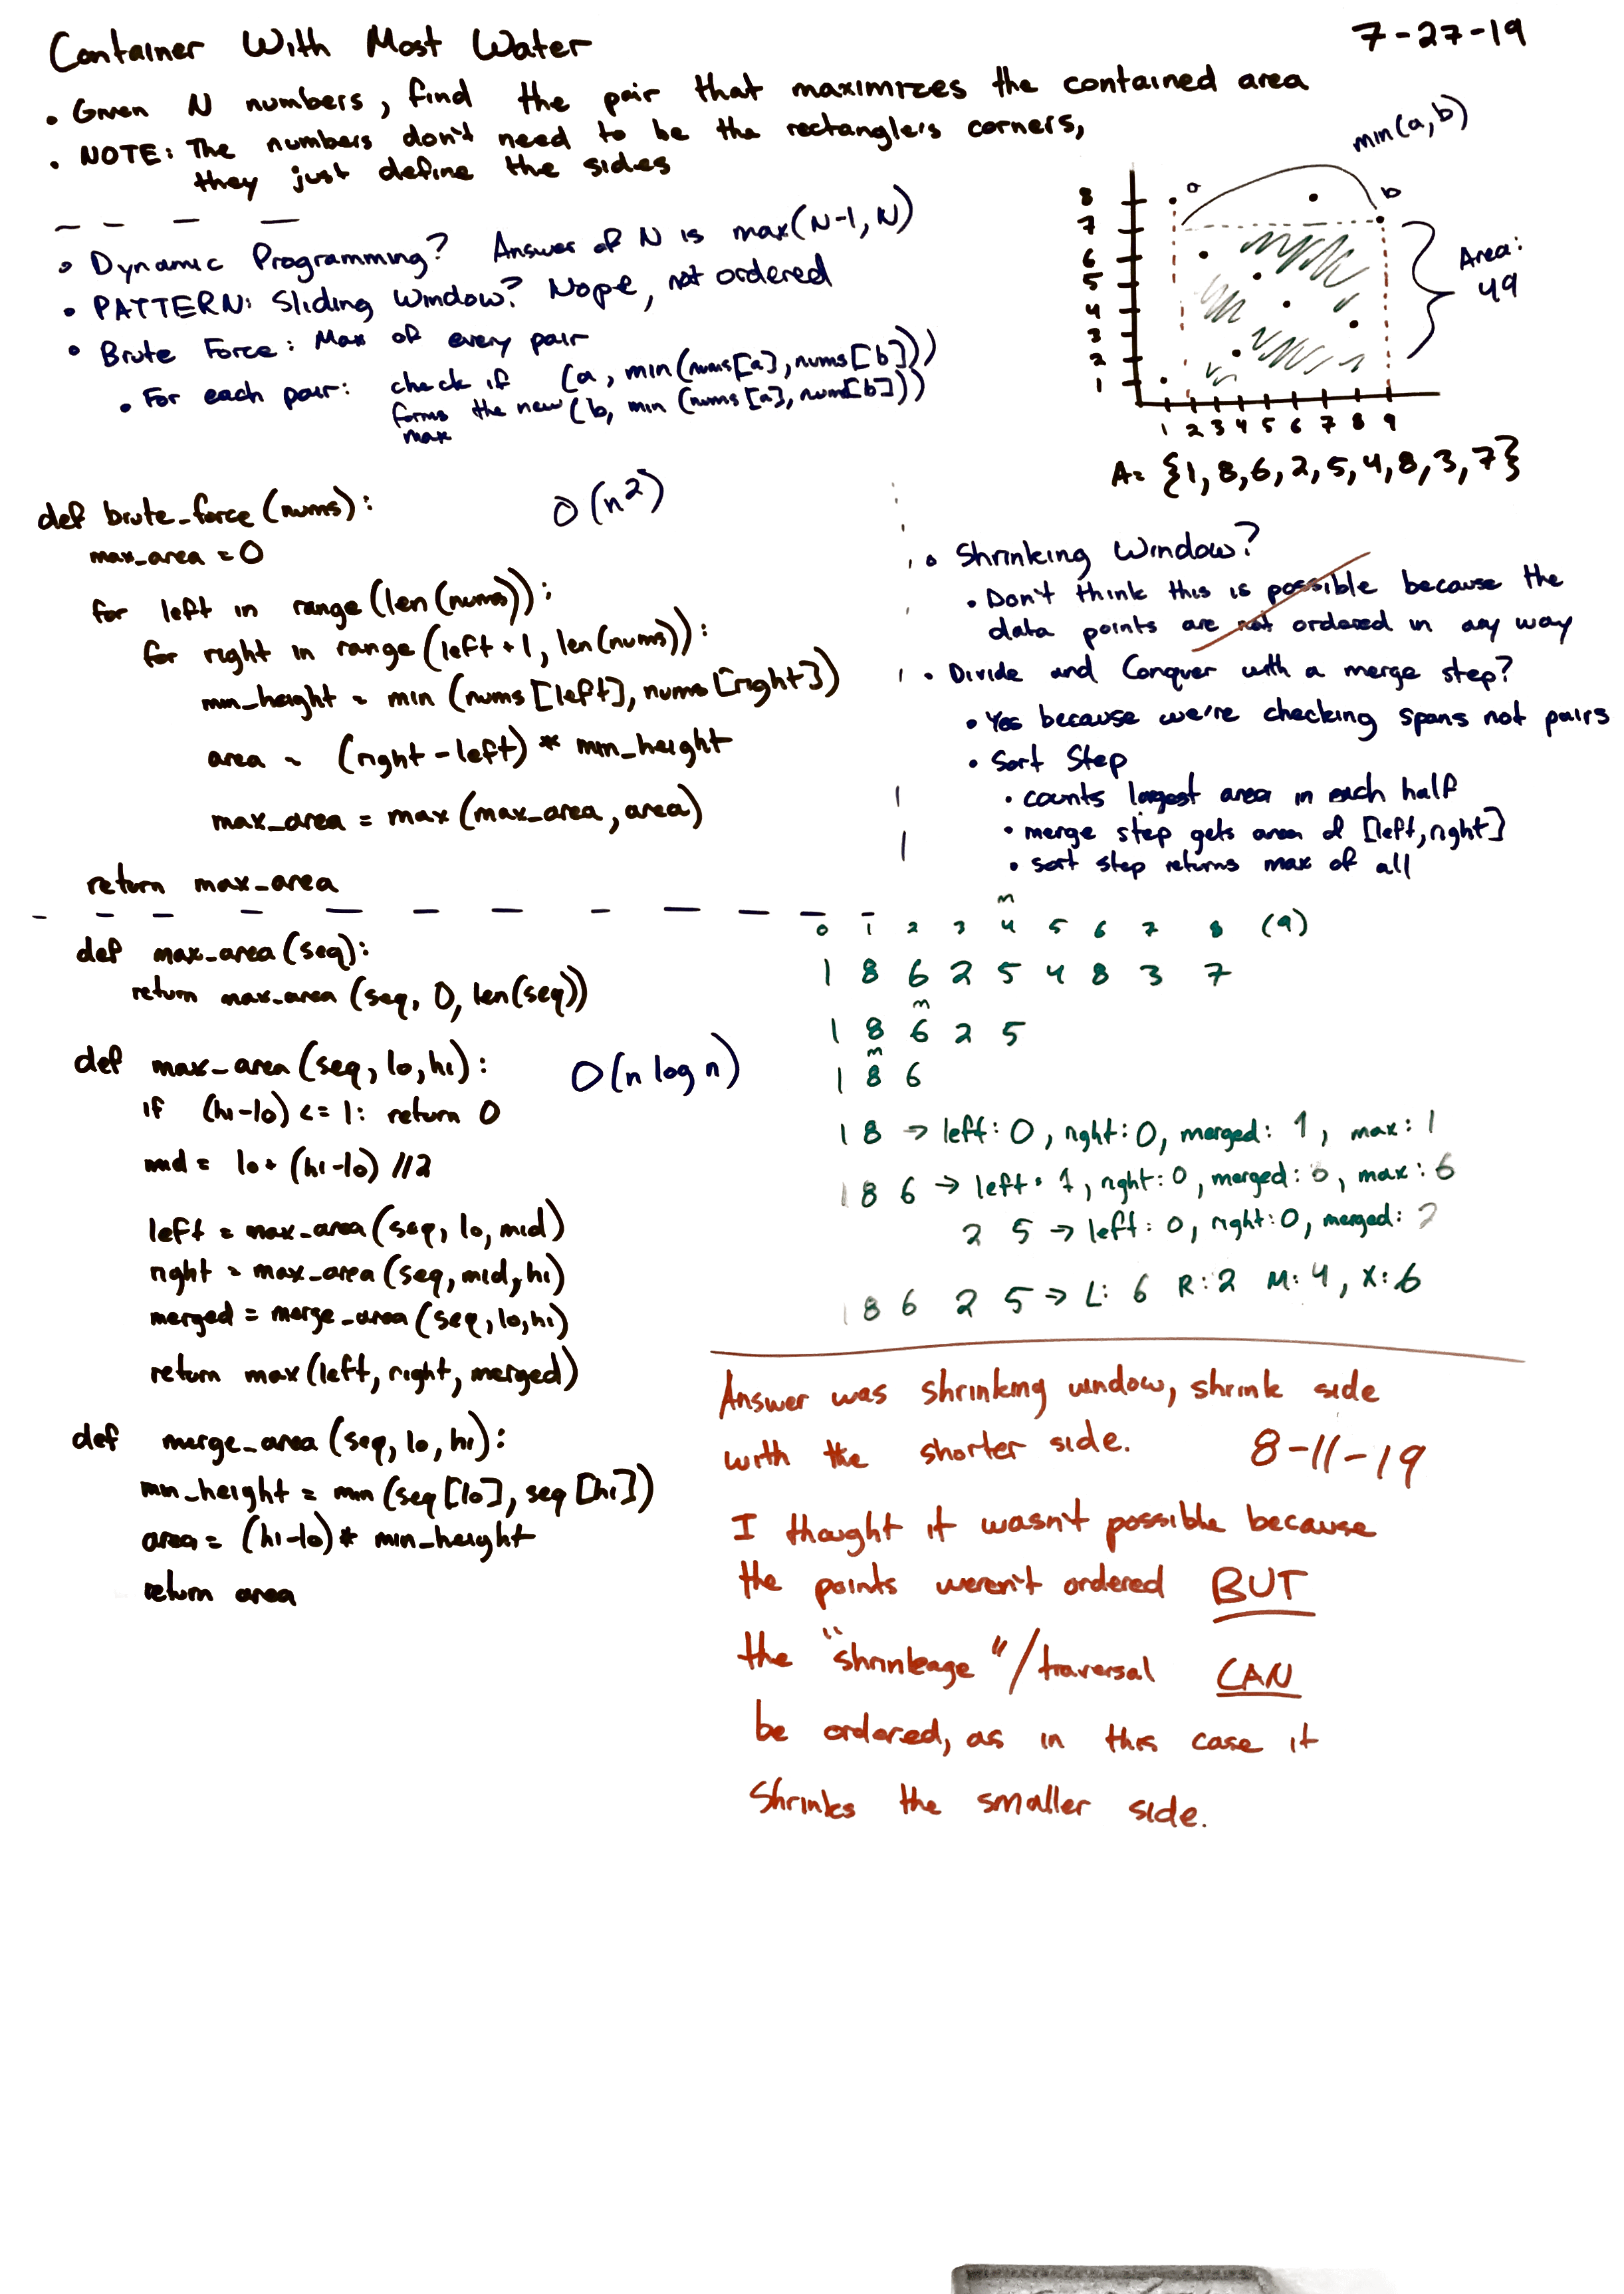 Container With Most Water
7-27-19
• Given N numbers, find the pair that maximizes the contained area
• NOTE: The numbers don't need to be the rectangle's corners,
they just define the sides
min(a,b)
a
b
8
7
6
5
4
3
2
1
1 2 3 4 5 6 7 8 9
Area:
49
A= {1,8,6,2,5,4,8,3,7}
• Dynamic Programming? Answer of N is max(N-1, N)
• PATTERN: Sliding Window? Nope, not ordered
• Brute Force: Max of every pair
• For each pair: check if (a, min(nums[a], nums[b]))
forms the new (b, min(nums[a], num[b]))
max
def brute_force(nums): O(n²)
max_area = 0
for left in range(len(nums)):
for right in range(left+1, len(nums)):
min_height = min(nums[left], nums[right])
area = (right-left) * min_height
max_area = max(max_area, area)
return max_area
• Shrinking Window?
• Don't think this is possible because the
data points are not ordered in any way
• Divide and Conquer with a merge step?
• Yes because we're checking spans not pairs
• Sort Step
• counts largest area in each half
• merge step gets area of [left,right]
• sort step returns max of all
def max_area(seq):
return max_area(seq, 0, len(seq))
def max_area(seq, lo, hi): O(n log n)
if (hi-lo) <= 1: return 0
mid = lo+ (hi-lo)//2
left = max_area(seq, lo, mid)
right = max_area(seq, mid, hi)
merged = merge_area(seq, lo, hi)
return max(left, right, merged)
def merge_area(seq, lo, hi):
min_height = min(seq[lo], seq[hi])
area = (hi-lo) * min_height
return area
m
0 1 2 3 4 5 6 7 8 (9)
1 8 6 2 5 4 8 3 7
m
1 8 6 2 5
m
1 8 6
1 8 → left: 0, right: 0, merged: 1, max: 1
1 8 6 → left: 1, right: 0, merged: 6, max: 6
2 5 → left: 0, right: 0, merged: 2
1 8 6 2 5 → L: 6 R: 2 M: 4, X: 6
Answer was shrinking window, shrink side
with the shorter side. 8-11-19
I thought it wasn't possible because
the points weren't ordered BUT
the "shrinkage"/traversal CAN
be ordered, as in this case it
shrinks the smaller side.